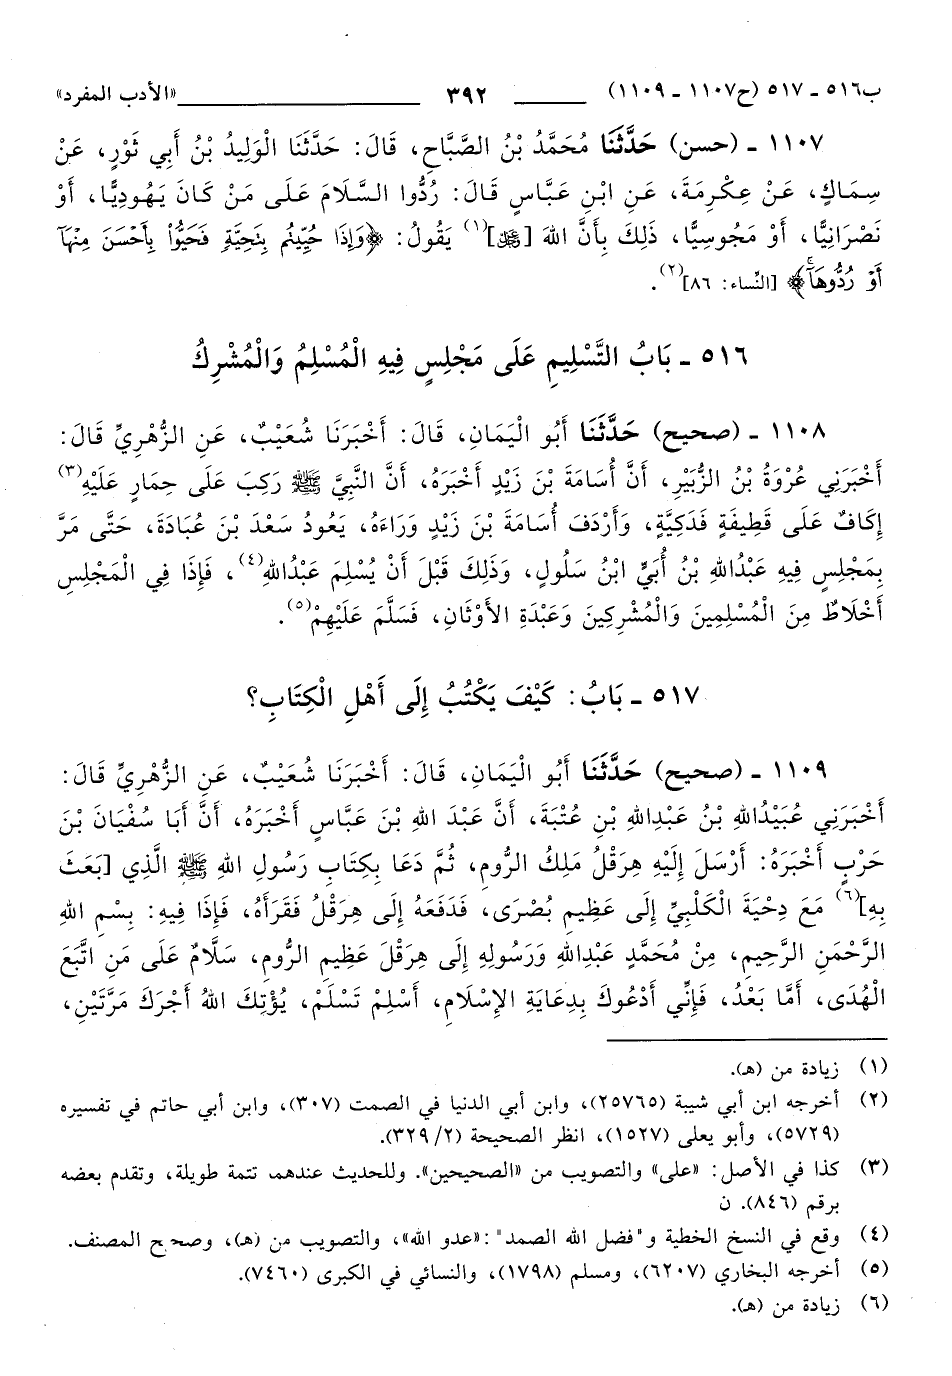 ب٥١٦ ـ ٥١٧ (ح١١٠٧ ـ ١١٠٩) ٣٩٢ «الأدب المفرد»
١١٠٧ ـ (حسن) حَدَّثَنَا مُحَمَّدُ بْنُ الصَّبَّاحِ، قَالَ: حَدَّثَنَا الْوَلِيدُ بْنُ أَبِي ثَوْرٍ، عَنْ
سِمَاكٍ، عَنْ عِكْرِمَةَ، عَنِ ابْنِ عَبَّاسٍ قَالَ: رُدُّوا السَّلَامَ عَلَى مَنْ كَانَ يَهُودِيًّا، أَوْ
نَصْرَانِيًّا، أَوْ مَجُوسِيًّا، ذَلِكَ بِأَنَّ اللهَ [ﷻ](١) يَقُولُ: ﴿وَإِذَا حُيِّيتُم بِتَحِيَّةٍ فَحَيُّوا۟ بِأَحْسَنَ مِنْهَآ
أَوْ رُدُّوهَآ﴾ [النِّساء: ٨٦](٢).
٥١٦ ـ بَابُ التَّسْلِيمِ عَلَى مَجْلِسٍ فِيهِ الْمُسْلِمُ وَالْمُشْرِكُ
١١٠٨ ـ (صحيح) حَدَّثَنَا أَبُو الْيَمَانِ، قَالَ: أَخْبَرَنَا شُعَيْبٌ، عَنِ الزُّهْرِيِّ قَالَ:
أَخْبَرَنِي عُرْوَةُ بْنُ الزُّبَيْرِ، أَنَّ أُسَامَةَ بْنَ زَيْدٍ أَخْبَرَهُ، أَنَّ النَّبِيَّ ﷺ رَكِبَ عَلَى حِمَارٍ عَلَيْهِ(٣)
إِكَافٌ عَلَى قَطِيفَةٍ فَدَكِيَّةٍ، وَأَرْدَفَ أُسَامَةَ بْنَ زَيْدٍ وَرَاءَهُ، يَعُودُ سَعْدَ بْنَ عُبَادَةَ، حَتَّى مَرَّ
بِمَجْلِسٍ فِيهِ عَبْدُاللهِ بْنُ أُبَيٍّ ابْنُ سَلُولٍ، وَذَلِكَ قَبْلَ أَنْ يُسْلِمَ عَبْدُاللهِ(٤)، فَإِذَا فِي الْمَجْلِسِ
أَخْلَاطٌ مِنَ الْمُسْلِمِينَ وَالْمُشْرِكِينَ وَعَبْدَةِ الأَوْثَانِ، فَسَلَّمَ عَلَيْهِمْ(٥).
٥١٧ ـ بَابُ: كَيْفَ يَكْتُبُ إِلَى أَهْلِ الْكِتَابِ؟
١١٠٩ ـ (صحيح) حَدَّثَنَا أَبُو الْيَمَانِ، قَالَ: أَخْبَرَنَا شُعَيْبٌ، عَنِ الزُّهْرِيِّ قَالَ:
أَخْبَرَنِي عُبَيْدُاللهِ بْنُ عَبْدِاللهِ بْنِ عُتْبَةَ، أَنَّ عَبْدَ اللهِ بْنَ عَبَّاسٍ أَخْبَرَهُ، أَنَّ أَبَا سُفْيَانَ بْنَ
حَرْبٍ أَخْبَرَهُ: أَرْسَلَ إِلَيْهِ هِرَقْلُ مَلِكُ الرُّومِ، ثُمَّ دَعَا بِكِتَابِ رَسُولِ اللهِ ﷺ الَّذِي [بَعَثَ
بِهِ](٦) مَعَ دِحْيَةَ الْكَلْبِيِّ إِلَى عَظِيمِ بُصْرَى، فَدَفَعَهُ إِلَى هِرَقْلُ فَقَرَأَهُ، فَإِذَا فِيهِ: بِسْمِ اللهِ
الرَّحْمَنِ الرَّحِيمِ، مِنْ مُحَمَّدٍ عَبْدِاللهِ وَرَسُولِهِ إِلَى هِرَقْلَ عَظِيمِ الرُّومِ، سَلَّامٌ عَلَى مَنِ اتَّبَعَ
الْهُدَى، أَمَّا بَعْدُ، فَإِنِّي أَدْعُوكَ بِدِعَايَةِ الإِسْلَامِ، أَسْلِمْ تَسْلَمْ، يُؤْتِكَ اللهُ أَجْرَكَ مَرَّتَيْنِ،
(١) زيادة من (هـ).
(٢) أخرجه ابن أبي شيبة (٢٥٧٦٥)، وابن أبي الدنيا في الصمت (٣٠٧)، وابن أبي حاتم في تفسيره
(٥٧٢٩)، وأبو يعلى (١٥٢٧)، انظر الصحيحة (٣٢٩/٢).
(٣) كذا في الأصل: «على» والتصويب من «الصحيحين». وللحديث عندهما تتمة طويلة، وتقدم بعضه
برقم (٨٤٦). ن
(٤) وقع في النسخ الخطية و"فضل الله الصمد": «عدو الله»، والتصويب من (هـ)، وصحيح المصنف.
(٥) أخرجه البخاري (٦٢٠٧)، ومسلم (١٧٩٨)، والنسائي في الكبرى (٧٤٦٠).
(٦) زيادة من (هـ).